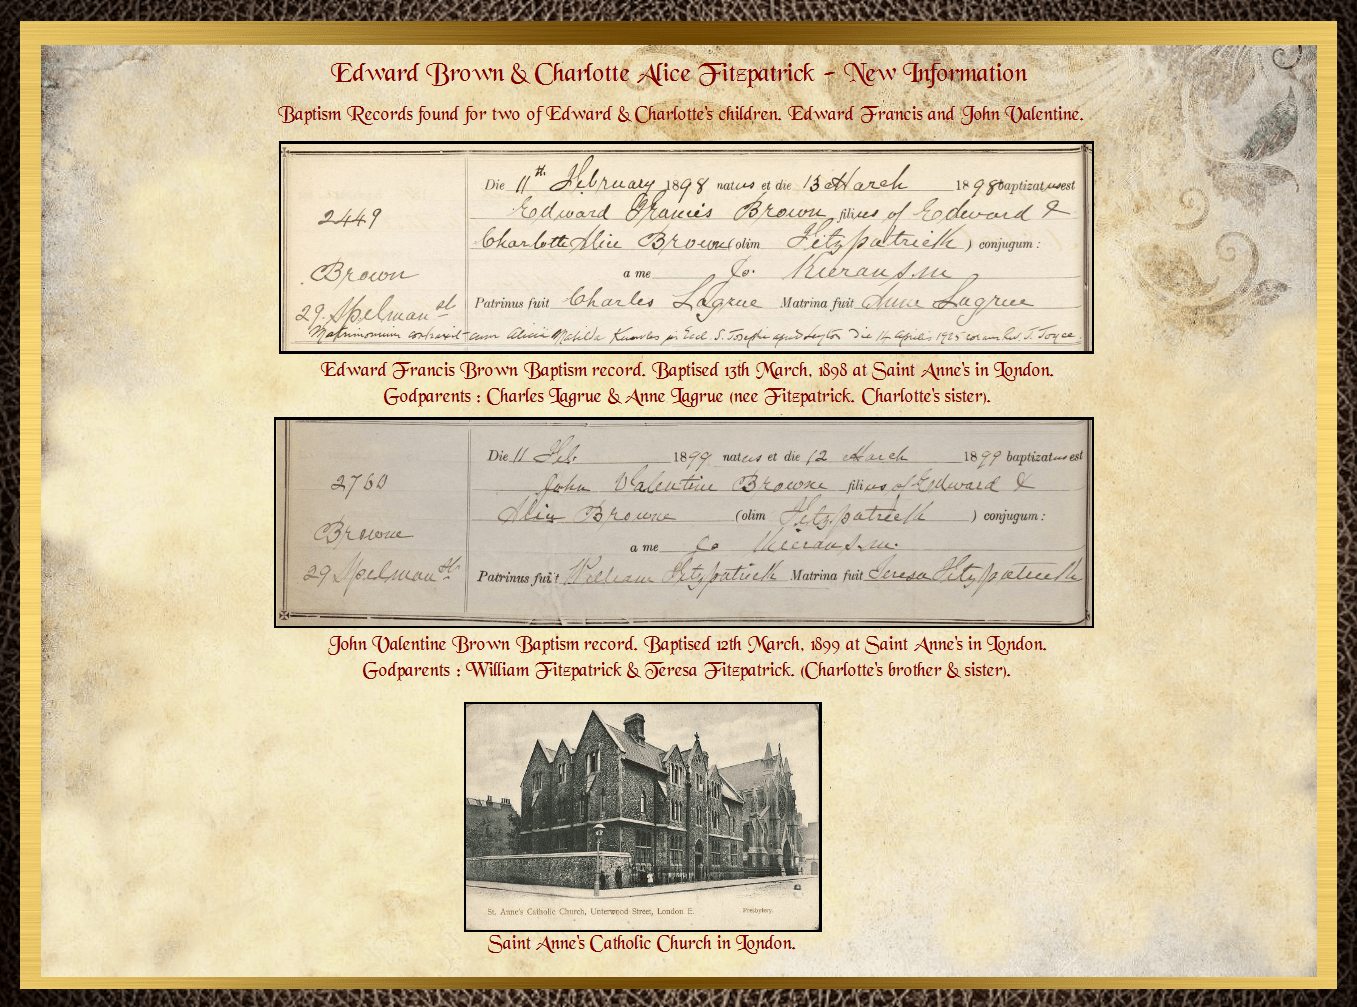 Edward Brown & Charlotte Alice Fitzpatrick - New Information
Baptism Records found for two of Edward & Charlotte's children. Edward Francis and John Valentine.
Die 11th February 1898 natus et die 13 March 1898 baptizatus est
2449
Edward Francis Brown filius of Edward &
Charlotte Alice Brown (olim Fitzpatrick) conjugum:
Brown
a me Co. Kieran S.M
29. Spelman st
Patrinus fuit Charles Lagrue Matrina fuit Anne Lagrue
Matrimonium contraxit cum Alicia Matilda Knowles in Eccl. S. Joseph apud Leyton Die 14 Aprilis 1925 coram Rev. J. Joyce
Edward Francis Brown Baptism record. Baptised 13th March, 1898 at Saint Anne's in London.
Godparents : Charles Lagrue & Anne Lagrue (nee Fitzpatrick. Charlotte's sister).
Die 11 Feb. 1899 natus et die 12 March 1899 baptizatus est
2760
John Valentine Browne filius of Edward &
Alice Browne (olim Fitzpatrick) conjugum:
Browne
a me Co Kieran S.M.
29 Spelman St
Patrinus fuit William Fitzpatrick Matrina fuit Teresa Fitzpatrick
John Valentine Brown Baptism record. Baptised 12th March, 1899 at Saint Anne's in London.
Godparents : William Fitzpatrick & Teresa Fitzpatrick. (Charlotte's brother & sister).
St. Anne's Catholic Church, Unterwood Street, London E. Presbytery.
Saint Anne's Catholic Church in London.